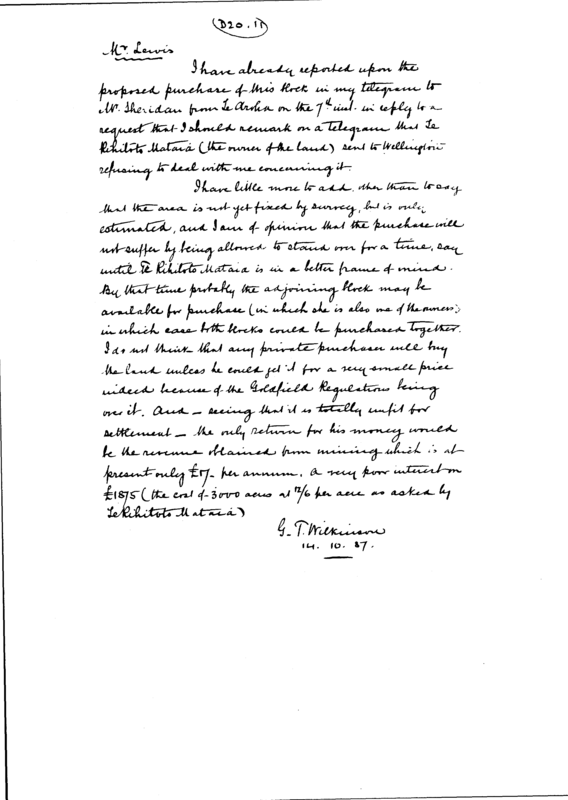 (D20. 11)
Mr. Lewis
I have already reported upon the
proposed purchase of this block in my telegram to
Mr. Sheridan from Te Aroha on the 7th inst. in reply to a
request that I should remark on a telegram that Te
Rihitoto Mataia (the owner of the land) sent to Wellington
refusing to deal with me concerning it.
I have little more to add, other than to say
that the area is not yet fixed by survey, but is only
estimated, and I am of opinion that the purchase will
not suffer by being allowed to stand over for a time, say
until Te Rihitoto Mataia is in a better frame of mind.
By that time probably the adjoining block may be
available for purchase (in which she is also one of the owners)
in which case both blocks could be purchased together.
I do not think that any private purchaser will buy
the land unless he could get it for a very small price
indeed because of the Goldfield Regulations being
over it. And – seeing that it is totally unfit for
settlement – the only return for his money would
be the revenue obtained from mining which is at
present only per annum. A very poor interest on
£1875 (the cost of 3000 acres at 12/6 per acre as asked by
Te Rihitoto Mataia)
G. T. Wilkinson
14. 10. 87.